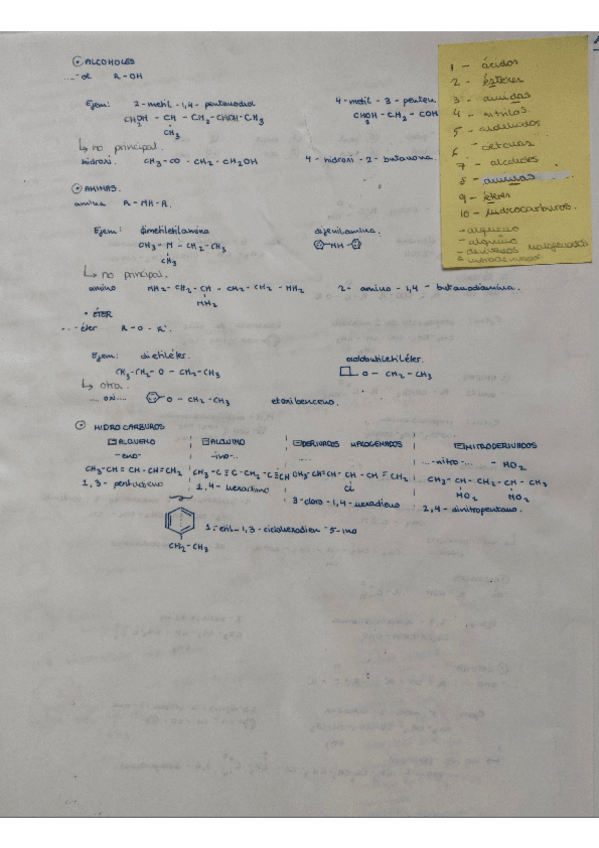 ALCOHOLES
...-ol R-OH
Ejem: 2-metil-1,4-pentanodiol
CH2OH - CH - CH2-CHOH-CH3
CH3
4-metil-3-penten
CHOH-CH2-COH
↳ no principal.
hidroxi. CH3-CO-CH2-CH2OH 4-hidroxi-2-butanona.
AMINAS.
amina R-NH-R.
Ejem: dimetiletilamina difenilamina.
CH3-N-CH2-CH3 -NH-
CH3
↳ no principal.
amino NH2-CH2-CH-CH2-CH2-NH2 2-amino-1,4-butanodiamina.
NH2
• ÉTER
...-éter R-O-R'
Ejem: dietiléter. ciclobutiletiléter.
CH3-CH2-O-CH2-CH3 O-CH2-CH3
↳ otra.
...oxi... O-CH2-CH3 etoxibenceno.
HIDROCARBUROS
ALQUENO
-eno-
CH3-CH=CH-CH=CH2
1,3-pentadieno
ALQUINO
-ino-
CH3-C≡C-CH2-C≡CH
1,4-hexadiino
DERIVADOS HALOGENADOS
...
CH3-CH=CH-CH-CH=CH2
Cl
3-cloro-1,4-hexadieno
NITRODERIVADOS
...-nitro-... -NO2
CH3-CH-CH2-CH-CH3
NO2 NO2
2,4-dinitropentano.
CH2-CH3
1-etil-1,3-ciclohexadien-5-ino
1- ácidos
2- ésteres
3- amidas
4- nitrilos
5- aldehidos
6- cetonas
7- alcoholes
8- aminas
9- éteres
10- hidrocarburos.
-alqueno
-alquino
-derivados halogenados